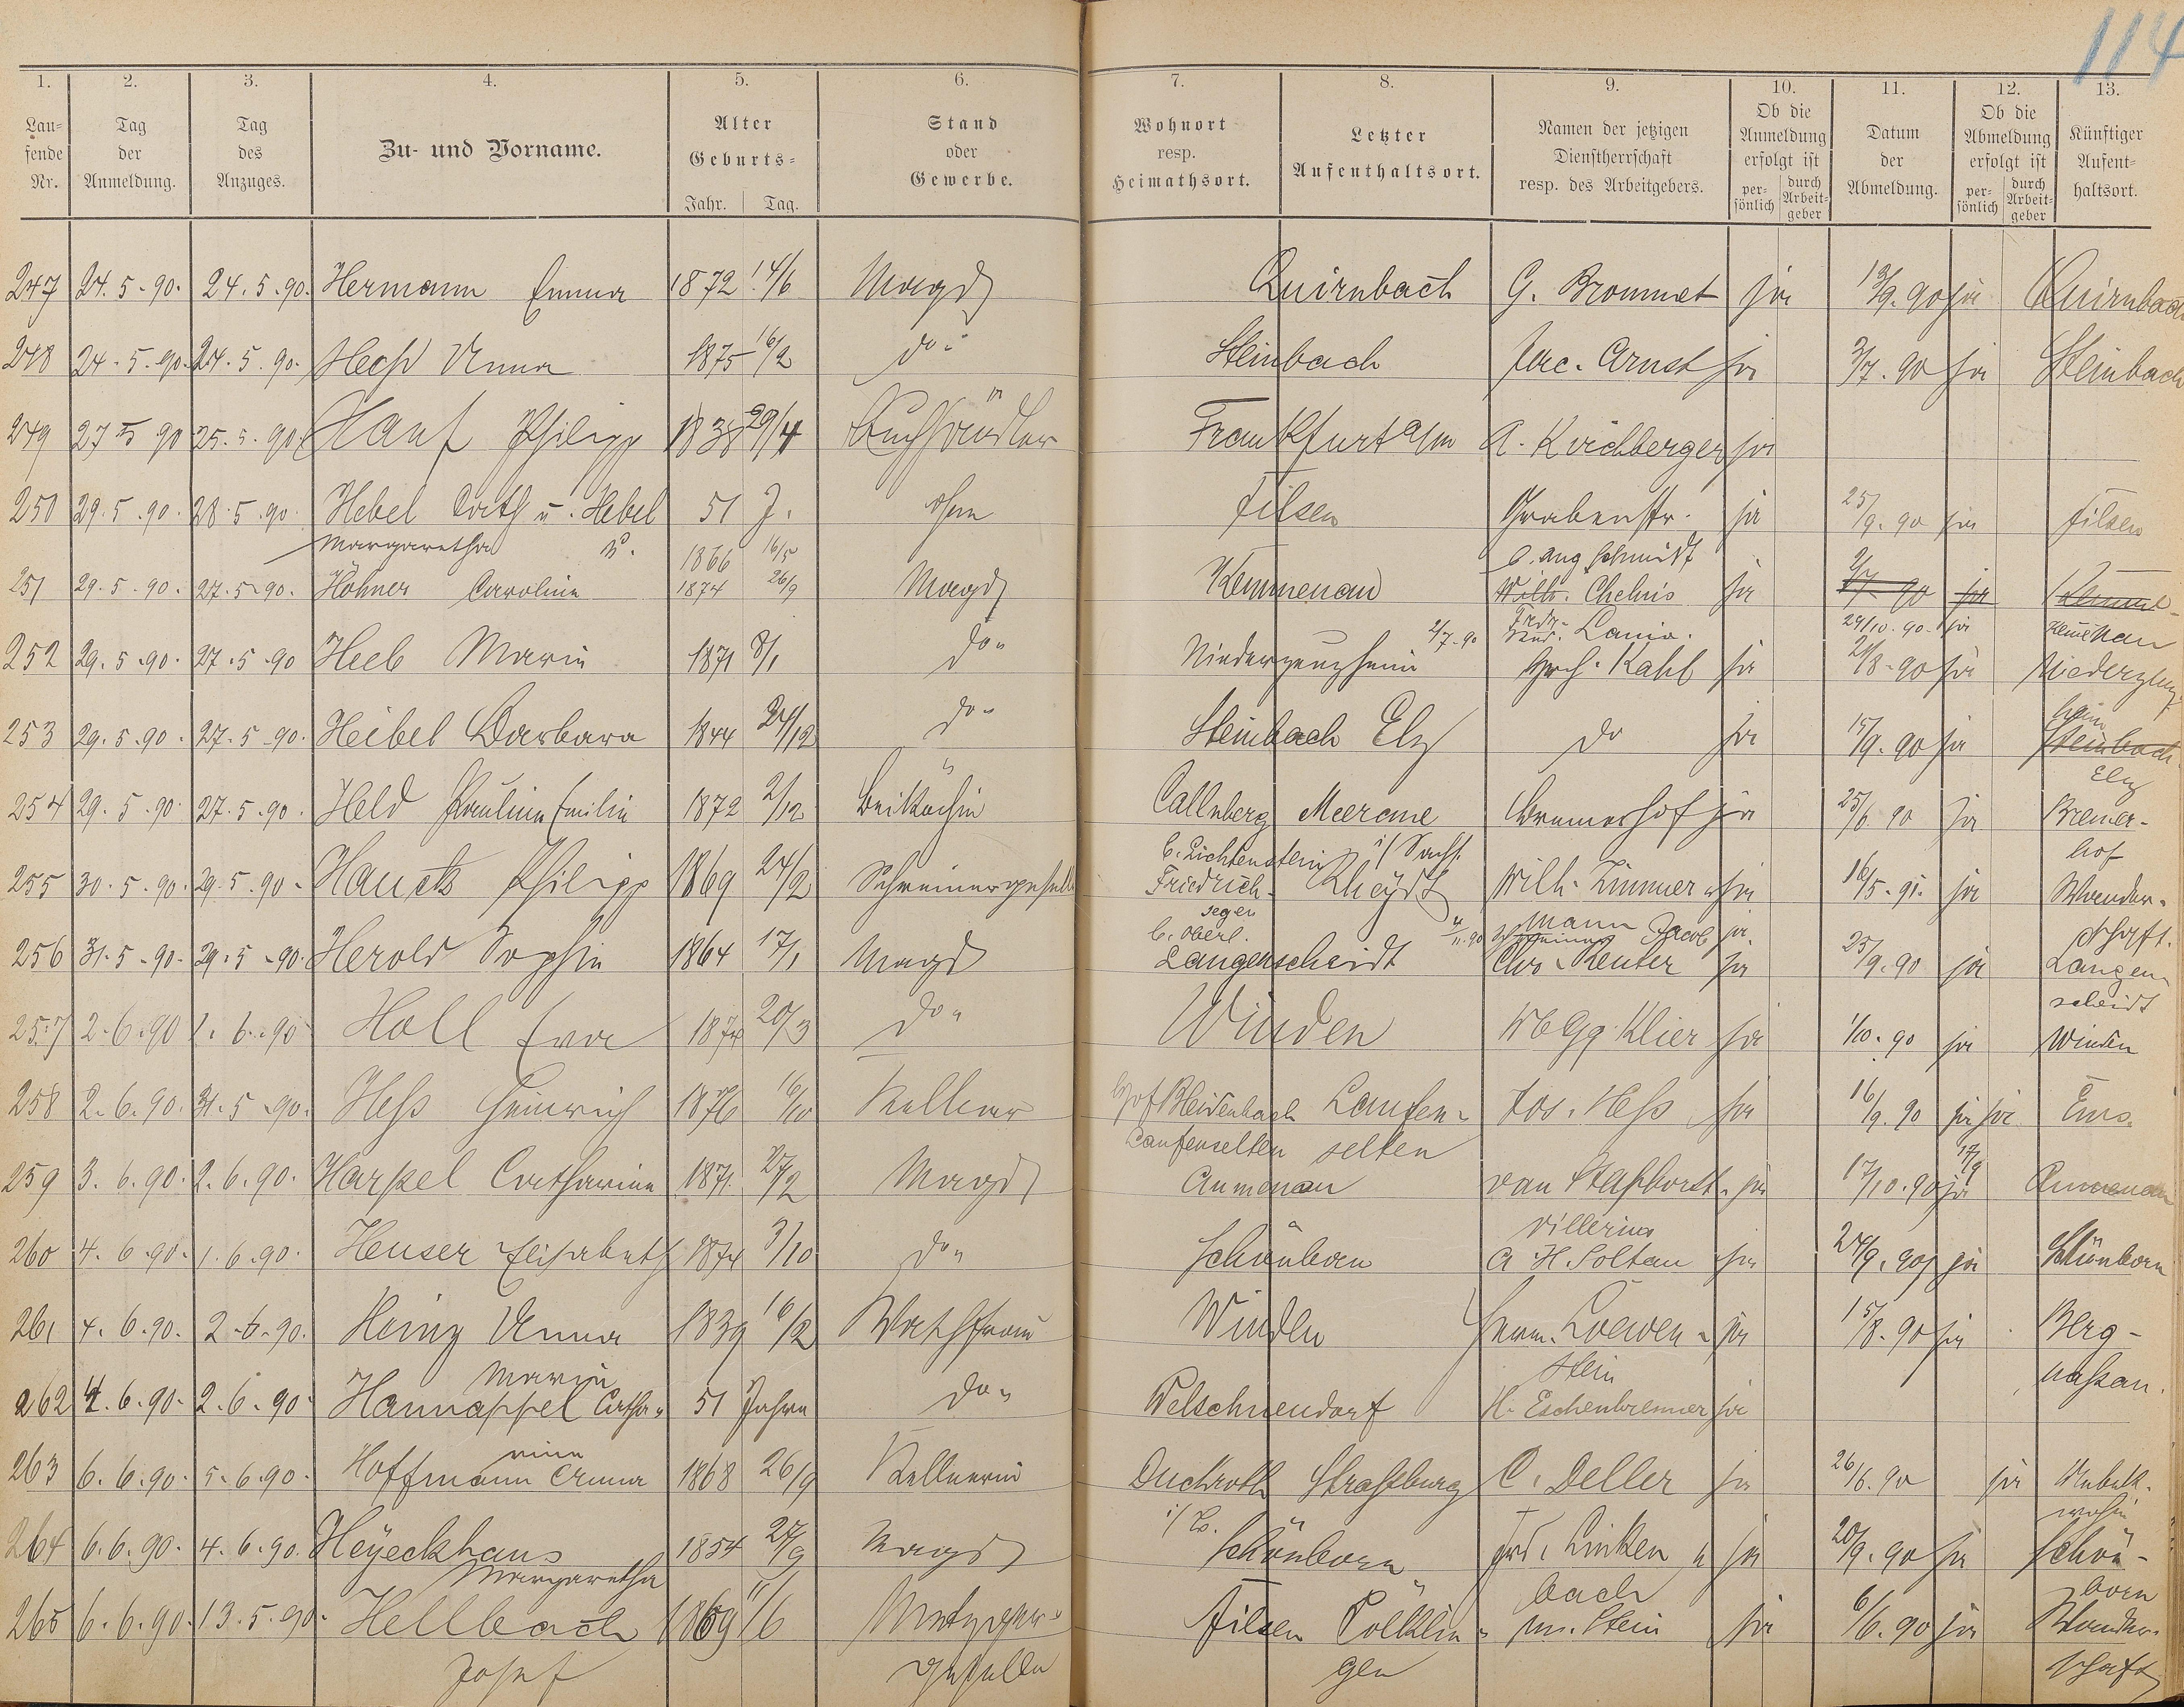 114
1. 2. 3. 4. 5. 6. 7. 8. 9. 10. 11. 12. 13.
Lau=
fende
Nr.
Tag
der
Anmeldung.
Tag
des
Anzuges.
Zu- und Vorname.
Alter
Geburts=
Jahr. Tag.
Stand
oder
Gewerbe.
Wohnort
resp.
Heimathsort.
Letzter
Aufenthaltsort.
Namen der jetzigen
Dienstherrschaft
resp. des Arbeitgebers.
Ob die
Anmeldung
erfolgt ist
per-
sönlich
durch
Arbeit-
geber
Datum
der
Abmeldung.
Ob die
Abmeldung
erfolgt ist
per-
sönlich
durch
Arbeit-
geber
Künftiger
Aufent-
haltsort.
247 24.5-90. 24.5.90. Hermann Emma 1872 14/6 Magd Quirnbach G. Brommet ja 13/9.90 ja Quirnbach
248 24-5-90. 24.5.90. Hess Anna 1875 16/2 do Steinbach Jac. Arnst ja 3/7.90 ja Steinbach
249 27 5 90 25.5.90. Hanf Philipp 1838 29/4 Buchhändler Frankfurt a/m A. Kirchberger ja
250 29.5.90. 28.5.90. Hebel Cath u. Hebel 51 J. ohne Filsen Grabenstr. ja 25/9.90 ja Filsen
Margaretha 1866 16/5 b. Aug Schmidt
251 29.5.90. 27.5-90. Höhner Caroline 1874 26/9 Magd Kemmenau Wilh. Chelius ja 90 ja
2/7.90 Lania. 29/10.90. ja Kemenau
252 29.5.90. 27.5.90 Heeb Maria 1871 8/1 do Niederzeuzheim Hch. Kahl ja 21/8-90 ja Niederzeuz
heim
253 29.5.90. 27.5-90. Heibel Barbara 1844 24/12 do Steinbach Elz do ja 15/9.90 ja Steinbach
Elz
254 29.5.90. 27.5.90. Held Pauline Emilie 1872 2/12 Beiköchin Callnberg Meerane Bremerhof ja 25/6 90 ja Bremer-
b. Lichtenstein i/ Sachs. hof
255 30.5.90. 29.5.90- Hauck Philipp 1869 24/2 Schreinergeselle Friedrich- Rheydt Wilh. Zimmer- ja 16/5-91. ja Wander-
segen mann schaft.
b. Oberl. Jacob ja
256 31.5-90. 29.5-90. Herold Sophie 1864 17/1 Magd Langenscheidt Chr. Reuter ja 25/9.90 ja Langen-
scheidt
257 2.6.90 1.6.90 Holl Eva 1874 20/3 do Winden Wb Gg. Klier ja 1/10.90 ja Winden
258 2.6.90. 31.5-90. Hess Heinrich 1876 16/10 Kellner Hof Bleidenbach Laufen- Jos. Hess ja 16/9.90 ja ja Ems.
Laufenselten selten
259 3.6.90. 2.6.90. Harpel Catharina 1871. 27/2 Magd Aumenau van Staphorst. ja 17/10.90 ja 17/9 Aumenau
260 4.6.90. 1.6.90. Heuser Elisabeth 1874 3/10 do Schönborn A H. Soltau ja 24/9.90 ja Schönborn
261 4.6.90. 2-6-90. Heinz Anna 1839 16/2 Waschfrau Winden Herm. Loewen- ja 15/8.90 ja Berg-
Maria stein nassau.
262 4.6.90. 2.6.90. Hannappel Catha- 51 Jahre do Welschneudorf H. Eschenbrenner ja
rina
263 6.6.90. 5.6.90. Hoffmann Anna 1868 26/9 Kellnerin Duchroth Strassburg C. Deller ja 26/6.90 ja Unbek.
wohin
264 6.6.90. 4.6.90. Heyeckhaus 1854 27/9 Magd Schönborn Frd. Linken ja 20/9.90 ja Schön-
Margaretha bach born
265 6.6.90. 13.5.90. Hellbach 1869 11/6 Metzger- Filsen Völklin- Stein ja 6/6.90 ja Wander-
Josef geselle gen schaft